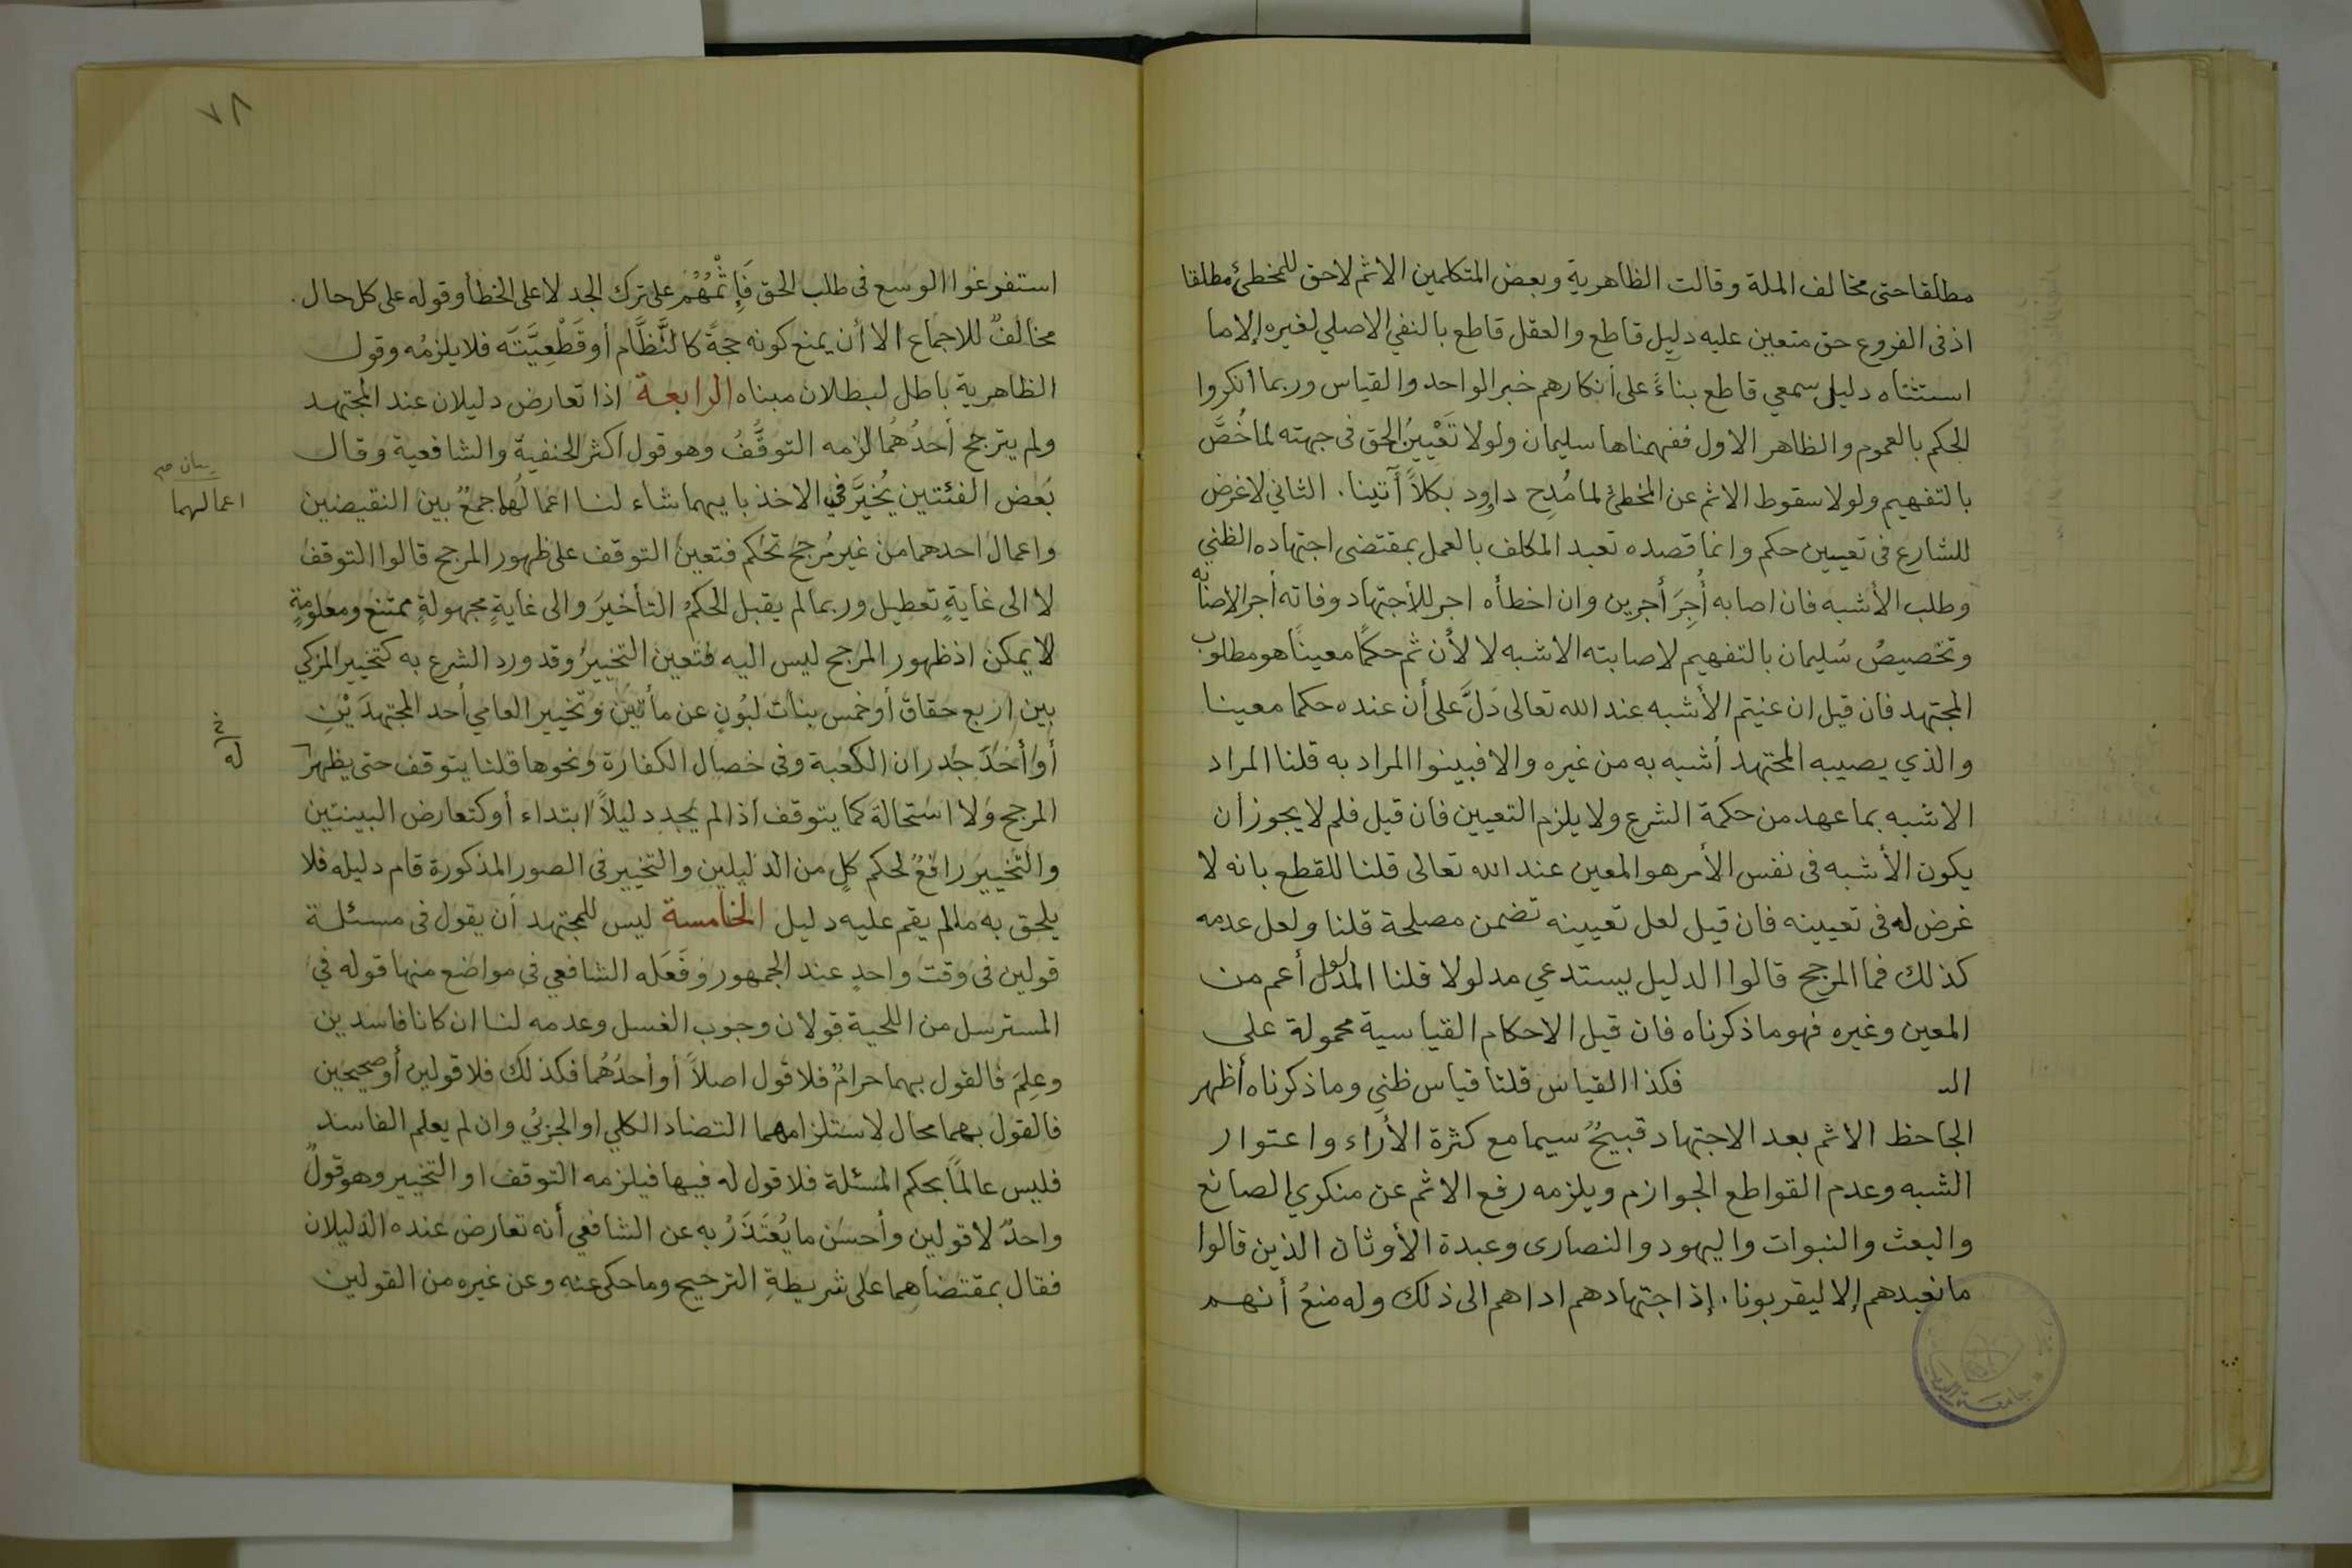 مطلقا حتى مخالف الملة وقالت الظاهرية وبعض المتكلمين الاثم لاحق للمخطئ مطلقا
اذ فى الفروع حق متعين عليه دليل قاطع والعقل قاطع بالنفي الاصلي لغيره إلا ما
استثناه دليل سمعي قاطع بناءً على أنكارهم خبر الواحد والقياس وربما انكروا
الحكم بالعموم والظاهر الاول ففهمناها سليمان ولولا تَعْيينُ الحق فى جهته لما خُصَّ
بالتفهيم ولولا سقوط الاثم عن المخطئ لما مُدِح داود بكلاً آتينا. الثاني لا غرض
للشارع فى تعيين حكم وانما قصده تعبد المكلف بالعمل بمقتضى اجتهاده الظني
وطلب الأشبه فان اصابه أُجِرَ أجرين وان اخطأه اجر للأجتهاد وفاته أجر الاصابه
وتخصيصُ سُليمان بالتفهيم لاصابته الاشبه لا لأن ثم حكمًا معينًا هو مطلوب
المجتهد فان قيل ان عنيتم الأشبه عند الله تعالى دَلَّ على أن عنده حكما معينا
والذي يصيبه المجتهد أشبه به من غيره والا فبينوا المراد به قلنا المراد
الاشبه بما عهد من حكمة الشرع ولا يلزم التعيين فان قيل فلم لا يجوز أن
يكون الأشبه فى نفس الأمر هو المعين عند الله تعالى قلنا للقطع بانه لا
غرض له فى تعيينه فان قيل لعل تعيينه تضمن مصلحة قلنا ولعل عدمه
كذلك فما المرجح قالوا الدليل يستدعي مدلولا قلنا المدلول أعم من
المعين وغيره فهو ما ذكرناه فان قيل الاحكام القياسية محمولة على
الـ فكذا القياس قلنا قياس ظني وما ذكرناه أظهر
الجاحظ الاثم بعد الاجتهاد قبيحٌ سيما مع كثرة الأراء واعتوار
الشبه وعدم القواطع الجوازم ويلزمه رفع الاثم عن منكري الصانع
والبعث والنبوات واليهود والنصارى وعبدة الأوثان الذين قالوا
ما نعبدهم إلا ليقربونا. إذ اجتهادهم اداهم الى ذلك وله منعُ أنهم
جامعة الرياض
٧٨
استفرغوا الوسع فى طلب الحق فَإِثْمُهُمْ على ترك الجد لا على الخطأ وقوله على كل حال.
مخالفٌ للاجماع الا أن يمنع كونه حجةً كالنَّظَّام أو قَطْعِيَّتَه فلا يلزمُه وقول
الظاهرية باطل لبطلان مبناه الرابعة اذا تعارض دليلان عند المجتهد
ولم يترجح أحدُهُما لزمه التوقُّفُ وهو قول اكثر الحنفية والشافعية وقال
بَعض الفئتين يُخيَّر فى الاخذ بايهما شاء لنا اعمالُها جمعٌ بين النقيضين
واعمال احدهما من غير مُرجح تحُكم فتعين التوقف على ظهور المرجح قالوا التوقف
لا الى غايةٍ تعطيل وربما لم يقبل الحكمُ التأخيرَ والى غايةٍ مجهولةٍ ممتنع ومعلومةٍ
لا يمكن اذ ظهور المرجح ليس اليه فتعين التخييرُ وقد ورد الشرع به كتخيير المزكي
بين اربع حقاق أو خمس بنات لبُونٍ عن مأتين وتخيير العامي أحد المجتهدَيْنِ
أو أحَدَ جُدران الكعبة وفى خصال الكفارة ونحوها قلنا يتوقف حتى يظهر
المرجح ولا استحالة كما يتوقف اذا لم يجد دليلاً ابتداء أو كتعارض البينتين
والتخيير رافعٌ لحكم كلٍ من الدليلين والتخيير فى الصور المذكورة قام دليله فلا
يلحق به ما لم يقم عليه دليل الخامسة ليس للمجتهد أن يقول فى مسئلة
قولين فى وقت واحدٍ عند الجمهور وفَعَله الشافعي فى مواضع منها قوله فى
المسترسل من اللحية قولان وجوب الغسل وعدمه لنا ان كانا فاسدين
وعِلِمَ فالقول بهما حرامٌ فلا قول اصلاً أو أحدُهُما فكذلك فلا قولين أو صحيحين
فالقول بهما محال لاستلزامهما التضاد الكلي او الجزئي وان لم يعلم الفاسد
فليس عالمًا بحكم المسئلة فلا قول له فيها فيلزمه التوقف او التخيير وهو قولٌ
واحدٌ لا قولين وأحسَن ما يُعْتَذَرُ به عن الشافعي أنه تعارض عنده الدليلان
فقال بمقتضاهما على شريطةِ الترجيح وما حكى عنه وعن غيره من القولين
بيان صح
اعمالهما
له